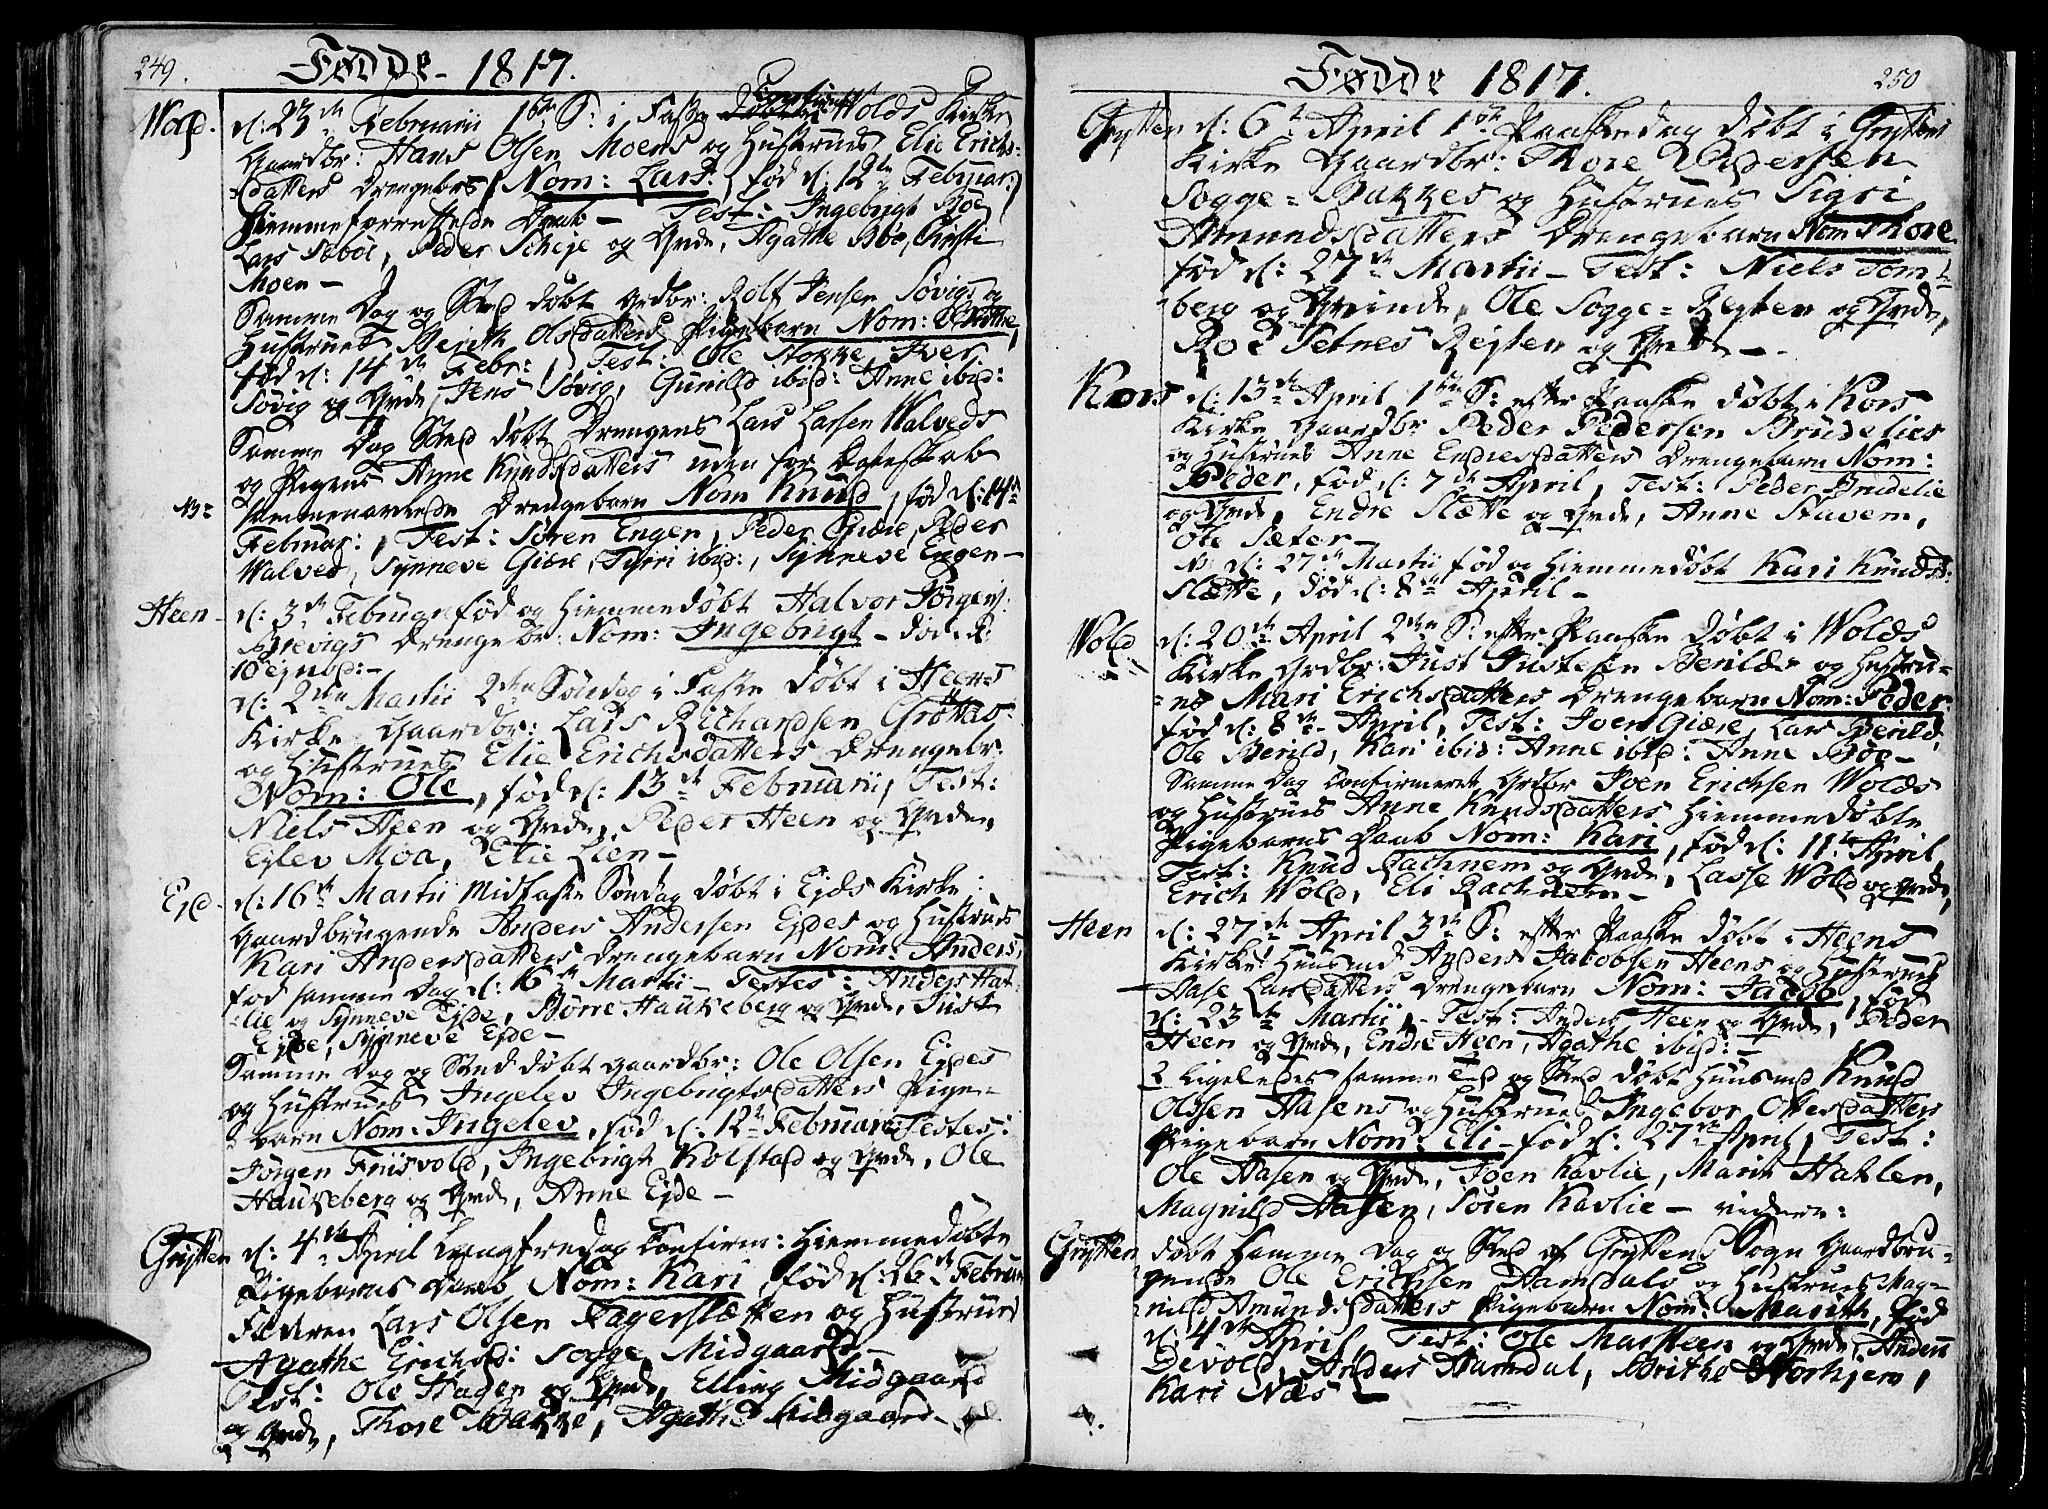 249.
Fødde 1817.
Wold. d: 23de Februarii 1ste S: i Faste Confirm: Wolds Kirke
Gaardbr: Hans Olsen Moens og Hustrues Elie Erichs-
datters Drengebs Nom: Lars, fød d: 12te Februar:
Hiemmeforrettede Daab – Test: Ingebrigt Böe
Lars Sæböe, Peder Scheje og Qvde, Agathe Böe, Kirsti
Moen –
Samme Dag og Sted döbt Grdbr: Rolf Jensen Sövigs og
Hustrues Berith Olsdatters Pigebarn Nom:
fød d: 14de Febr: Test: Ole Stokke, Iver
Sövig og Qvde, Jens Sövig, Gunild ibid: Anne ibid:
Samme Dag Sted döbt Drengens Lars Larsen Walveds
og Pigens Anne Knudsdatters uden for Ægteskab
NB: sammenavlede Drengebarn Nom Knud, fød d: 14de
Februar: Test: Sören Engen, Peder Giære, Peder
Walved, Synneve Giære, Siri ibid:, Synneve Engen –
Heen – d: 3de Februar fød og hiemmedøbt Halvor Jörgens:
Brevigs Drengebr: Nom: Ingebrigt – död d:
10 ejusd: –
d: 2den Martii 2den Söndag i Faste döbt i Heens
Kirke Gaardbr: Lars Richardsen Gröttes
og Hustrues Elie Erichsdatters Drengebr:
Nom: Ole, fød d: 13de Februarii, Test:
Niels Heen og Qvde, Peder Heen og Qvde,
Ejlev Moa, Elie Lien –
Ejd – d: 16de Martii Midfaste Söndag döbt i Ejds Kirke
Gaardbrugende Anders Andersen Ejdes og Hustrues
Kari Andersdatters Drengebarn Nom: Anders,
fød samme Dag d: 16de Martii – Testes: Anders Hat-
lie og Synneve Ejde, Börre Haukeberg og Qvde, Just
Ejde, Synneve Ejde –
Samme Dag og Sted döbt Gaardbr: Ole Olsen Ejdes
og Hustrues Ingelev Ingebrigtsdatters Pige-
barn Nom: Ingelev, fød d: 12te Februarii Testes:
Jörgen Friisvold, Ingebrigt Kolstad og Qvde, Ole
Haukeberg og Qvde, Anne Ejde –
Grytten d: 4de April Langfredag Confirm: Hiemmedöbte
Pigebarns Daab Nom: Kari, fød d: 26de Februar
Faderen Lars Olsen Fagersletten og Hustrue
Agathe Erichsd: Sogge Midgaard –
Test: Ole Hagen og Qvde, Elling Midgaard
og Qvde, Thore Bakke, Agathe Midgaard –
250
Fødde 1817.
Grytten d: 6te April 1ste Paaskedag döbt i Gryttens
Kirke Gaardbr: Thore Pedersen
Sogge-Bakkes og Hustrues Sigri
Amundsdatters Drengebarn Nom Thore
fød d: 27de Martii – Test: Niels Tom-
berg og Qvinde, Ole Sogge-Rejten og Qvde,
Roe Setnes Rejten og Qvde –
Kors d: 13de April 1ste S: efter Paaske döbt i Kors
Kirke Gaardbr Peder Pedersen Brudelies
og Hustrues Anne Endresdatters Drengebarn Nom:
Peder, fød d: 7de April, Test: Peder Brudelie
og Qvde, Endre Slette og Qvde, Anne Stavem,
Ole Sæter –
N: d: 27de Martii fød og Hiemmedöbt Kari Knudsd:
Slette, död d: 8de April –
Wold d: 20de April 2den S: efter Paaske döbt i Wolds
Kirke Grdbr: Just Justesen Berilds og Hustru-
es Mari Erichsdatters Drengebarn Nom: Peder
fød d: 8de April, Test: Joen Giære, Lars Berild,
Ole Berild, Kari ibid: Anne ibid: Anne Böe –
Samme Dag Confirmeret Grdbr Joen Erichsen Wolds
og Hustrues Anne Knudsdatters Hiemmedöbte
Pigebarns Daab Nom: Kari, fød d: 11te April
Test: Knud Rachnem og Qvde, Lasse Wold og Qvde,
Erich Wold, Eli Rachnem –
Heen d: 27de April 3de S: efter Paaske döbt i Heens
Kirke Huusmd Anders Jacobsen Heens og Hustrues
Aase Larsdatters Drengebarn Nom: Jacob, fød
d: 23de Martii, – Test: Anders Heen og Qvde, Peder
Heen og Qvde, Endre Heen, Agathe ibid: –
2 Ligeledes samme Tid og Sted döbt Huusmd Knud
Olsen Aasens og Hustrues Ingebor Olesdatters
Pigebarn Nom: Eli – fød d: 27de April, Test:
Ole Aasen og Qvde, Joen Kavlie, Marit Hatlen,
Magnild Aasen, Sören Kavlie – videre:
Grytten döbt samme Dag og Sted af Gryttens Sogn Gaardbru-
gende Ole Erichsen Hamdals og Hustrues Mag-
nild Amundsdatters Pigebarn Nom: Marith, fød
d: 4de April, Test: Ole Marsteen og Qvde, Anders
Devold, Anders Hamdal, Brithe Horhjem,
Kari Næs –